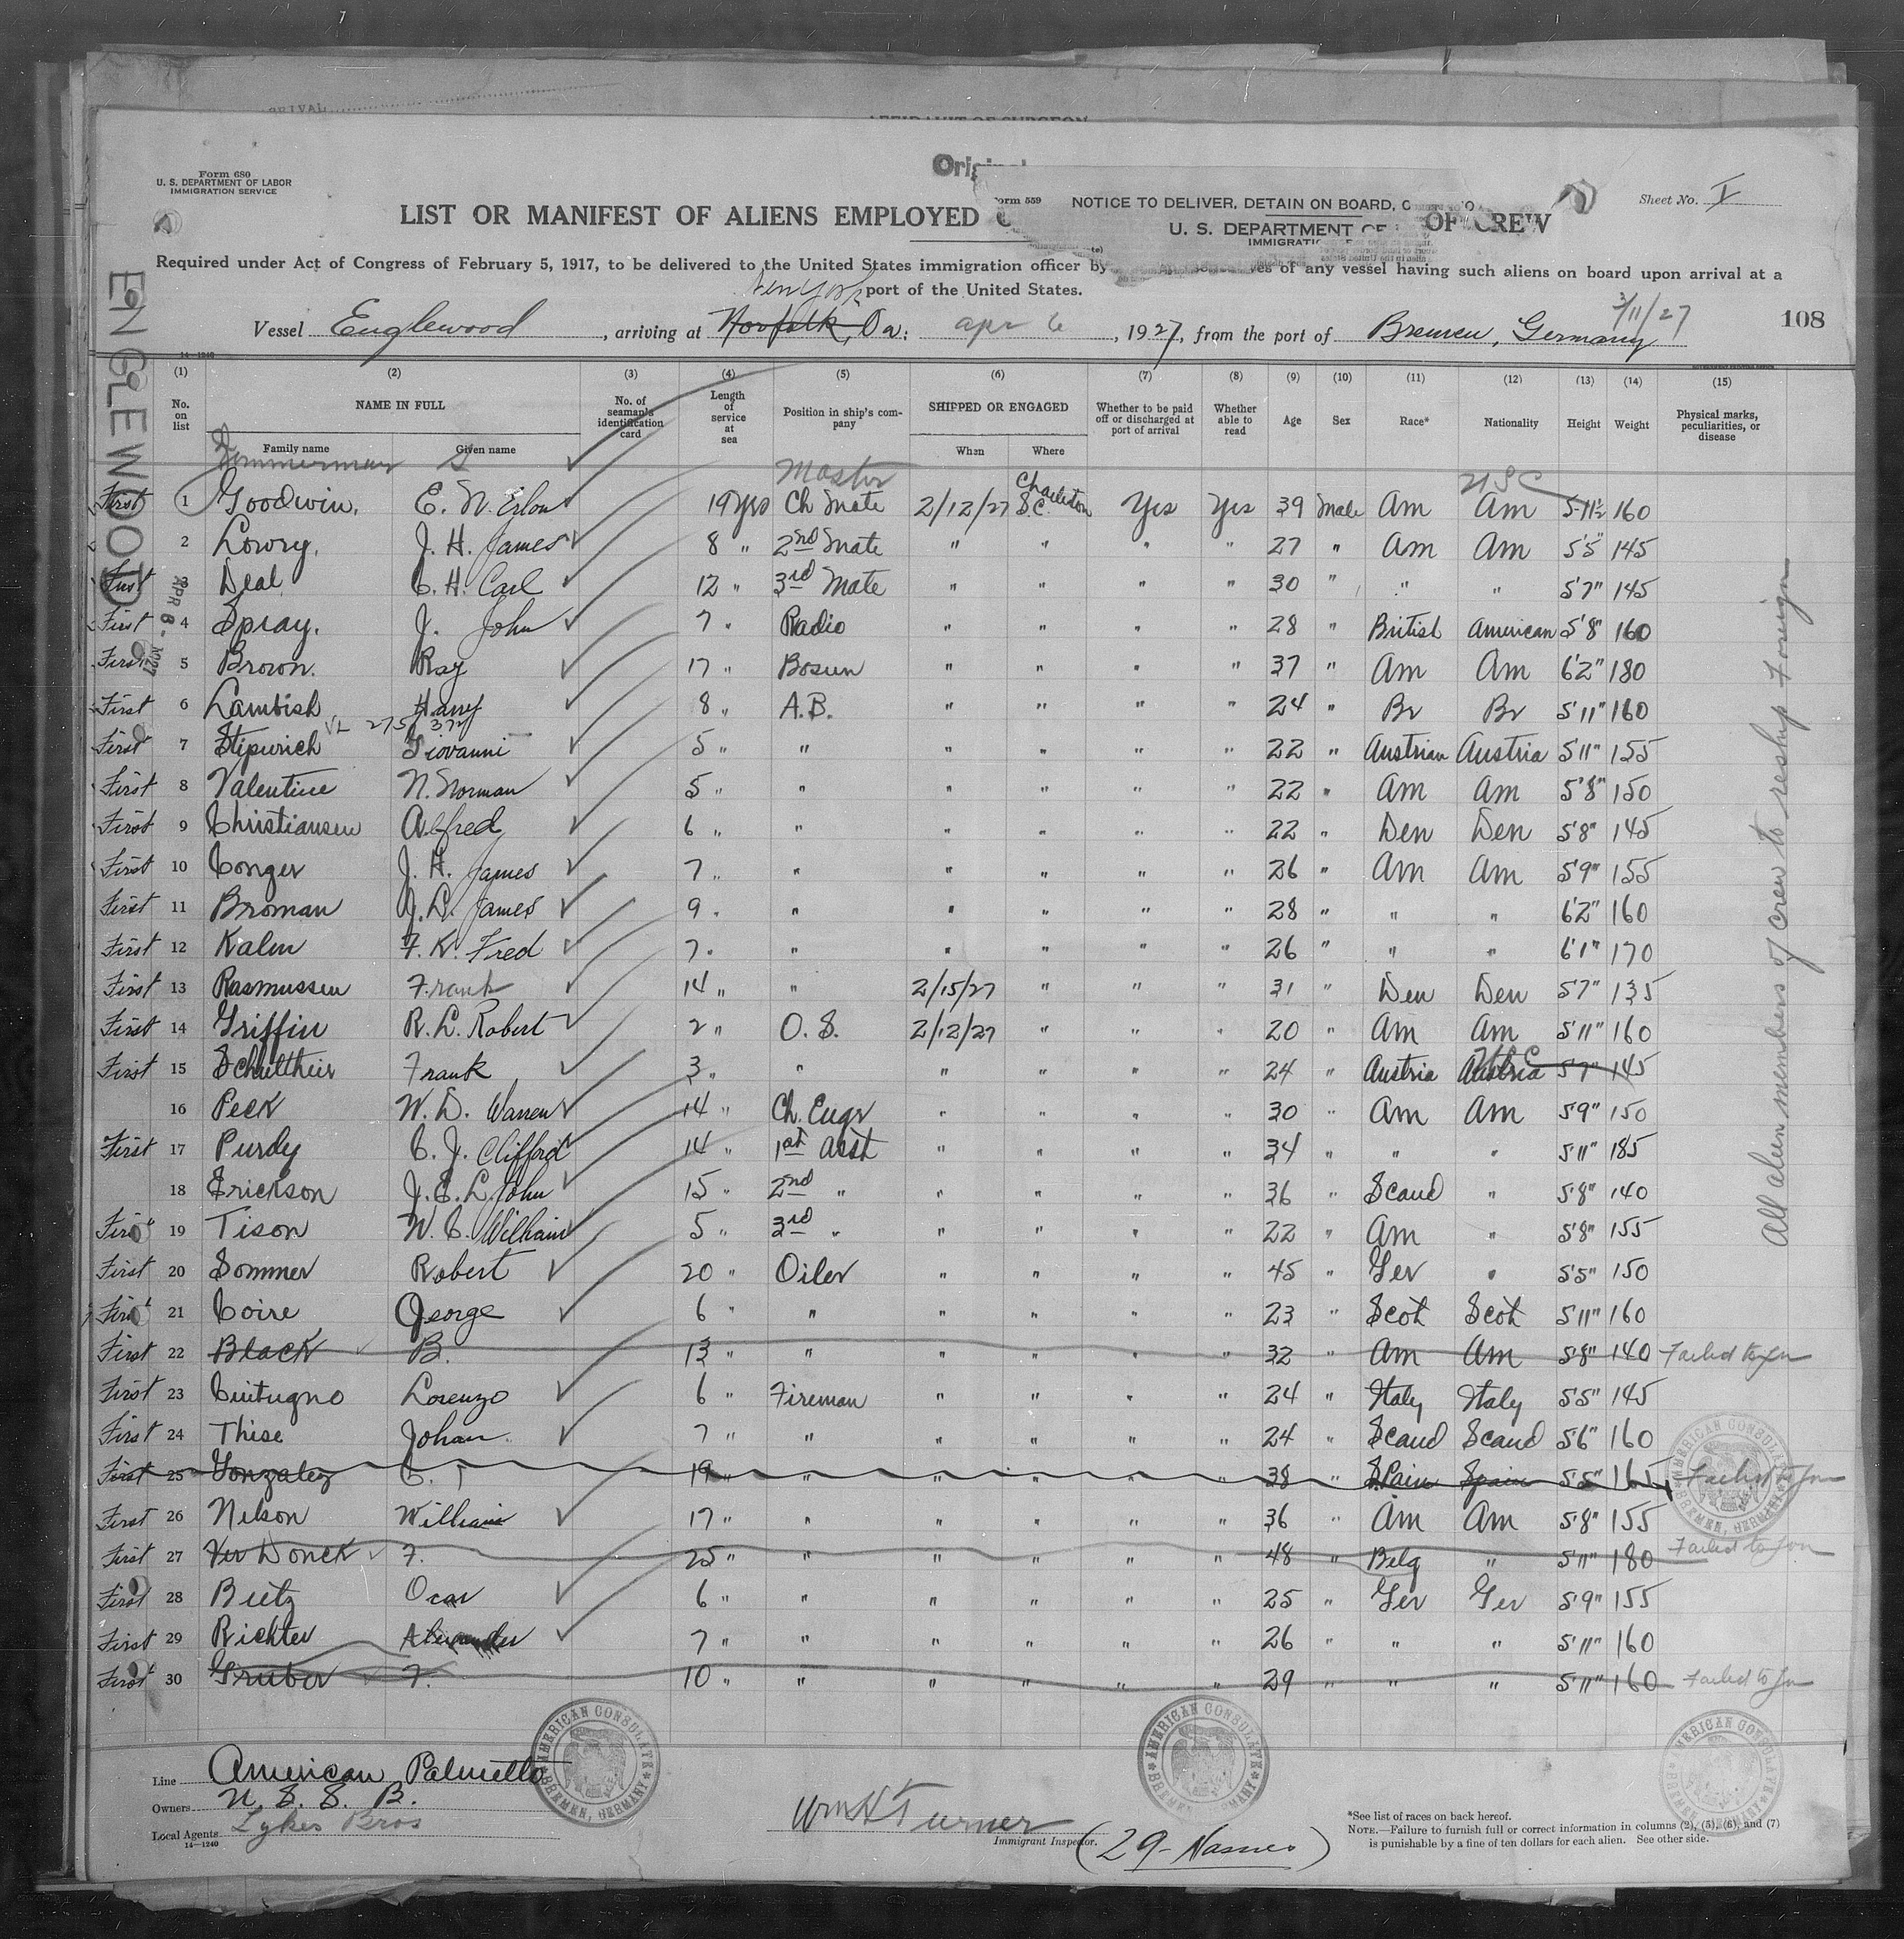 Original
Form 680
U. S. DEPARTMENT OF LABOR
IMMIGRATION SERVICE
Form 559 NOTICE TO DELIVER, DETAIN ON BOARD,
U. S. DEPARTMENT OF
Sheet No. I
LIST OR MANIFEST OF ALIENS EMPLOYED OF CREW
Required under Act of Congress of February 5, 1917, to be delivered to the United States immigration officer by of any vessel having such aliens on board upon arrival at a
port of the United States.
New York
Vessel Englewood, arriving at Norfolk, Va: apr 6, 1927, from the port of Bremen, Germany 3/11/27
108
ENGLEWOOD
APR 6 - 1927
(1) (2) (3) (4) (5) (6) (7) (8) (9) (10) (11) (12) (13) (14) (15)
No. on list NAME IN FULL No. of seaman's identification card Length of service at sea Position in ship's company SHIPPED OR ENGAGED Whether to be paid off or discharged at port of arrival Whether able to read Age Sex Race* Nationality Height Weight Physical marks, peculiarities, or disease
Family name Given name When Where
Zimmerman S Master U S C
First 1 Goodwin, E. N. 19 yrs Ch Mate 2/12/27 Charleston S.C. Yes Yes 39 Male Am Am 5-11½ 160
2 Lowry, J. H. James 8 " 2nd Mate " " " " 27 " Am Am 5'5" 145
First 3 Deal C. H. Carl 12 " 3rd Mate " " " 30 " " " 5'7" 145
First 4 Spray, J. John 7 " Radio " " " " 28 " British American 5'8" 160
First 5 Brown. Ray 17 " Bosun " " " " 37 " Am Am 6'2" 180
First 6 Lambish Harry 8 " A.B. " " " " 24 " Br Br 5'11" 160
First 7 Stipurich Giovanni 5 " " " " " " 22 " Austrian Austria 5'11" 155
First 8 Valentine N. Norman 5 " " " " " " 22 " Am Am 5'8" 150
First 9 Christiansen Alfred 6 " " " " " " 22 " Den Den 5'8" 145
First 10 Conger J. H. James 7 " " " " " " 26 " Am Am 5'9" 155
First 11 Broman J. L. James 9 " " " " " " 28 " " " 6'2" 160
First 12 Kalen F. K. Fred 7 " " " " " " 26 " " " 6'1" 170
First 13 Rasmussen Frank 14 " " 2/15/27 " " " 31 " Den Den 5'7" 135
First 14 Griffin R. L. Robert 2 " O. S. 2/12/27 " " " 20 " Am Am 5'11" 160
First 15 Schultheis Frank 3 " " " " " " 24 " Austria Austria U S C 5'7" 145
16 Peck W. D. Warren 14 " Ch. Engr " " " " 30 " Am Am 5'9" 150
First 17 Purdy C. J. Clifford 14 " 1st Asst " " " " 34 " " " 5'11" 185
18 Erickson J. E. L. John 15 " 2nd " " " " " 36 " Scand " 5'8" 140
First 19 Tison W. C. William 5 " 3rd " " " " " 22 " Am " 5'8" 155
First 20 Sommer Robert 20 " Oiler " " " " 45 " Ger " 5'5" 150
First 21 Coire George 6 " " " " " " 23 " Scot Scot 5'11" 160
First 22 Black B. 13 " " " " " " 32 " Am Am 5'8" 140 Failed to Join
First 23 Cuitugno Lorenzo 6 " Fireman " " " " 24 " Italy Italy 5'5" 145
First 24 Thise Johan 7 " " " " " " 24 " Scand Scand 5'6" 160
First 25 Gonzalez C. 19 " " " " " " 38 " Spain Spain 5'5" 165 Failed to Join
First 26 Nelson William 17 " " " " " " 36 " Am Am 5'8" 155
First 27 Ver Donck F. 25 " " " " " " 48 " Belg " 5'11" 180 Failed to Join
First 28 Bietz Ocar 6 " " " " " " 25 " Ger Ger 5'9" 155
First 29 Richter Alexander 7 " " " " " " 26 " " " 5'11" 160
First 30 Gruber F. 10 " " " " " " 29 " " " 5'11" 160 Failed to Join
All alien members of crew to reship foreign
AMERICAN CONSULATE BREMEN, GERMANY
AMERICAN CONSULATE BREMEN, GERMANY
AMERICAN CONSULATE BREMEN, GERMANY
AMERICAN CONSULATE BREMEN, GERMANY
Line American Palmetto
Owners U. S. S. B.
Local Agents Lykes Bros
14-1240
Wm H Turner
Immigrant Inspector.
(29- Names)
*See list of races on back hereof.
NOTE.—Failure to furnish full or correct information in columns (2), (5), (6), and (7)
is punishable by a fine of ten dollars for each alien. See other side.